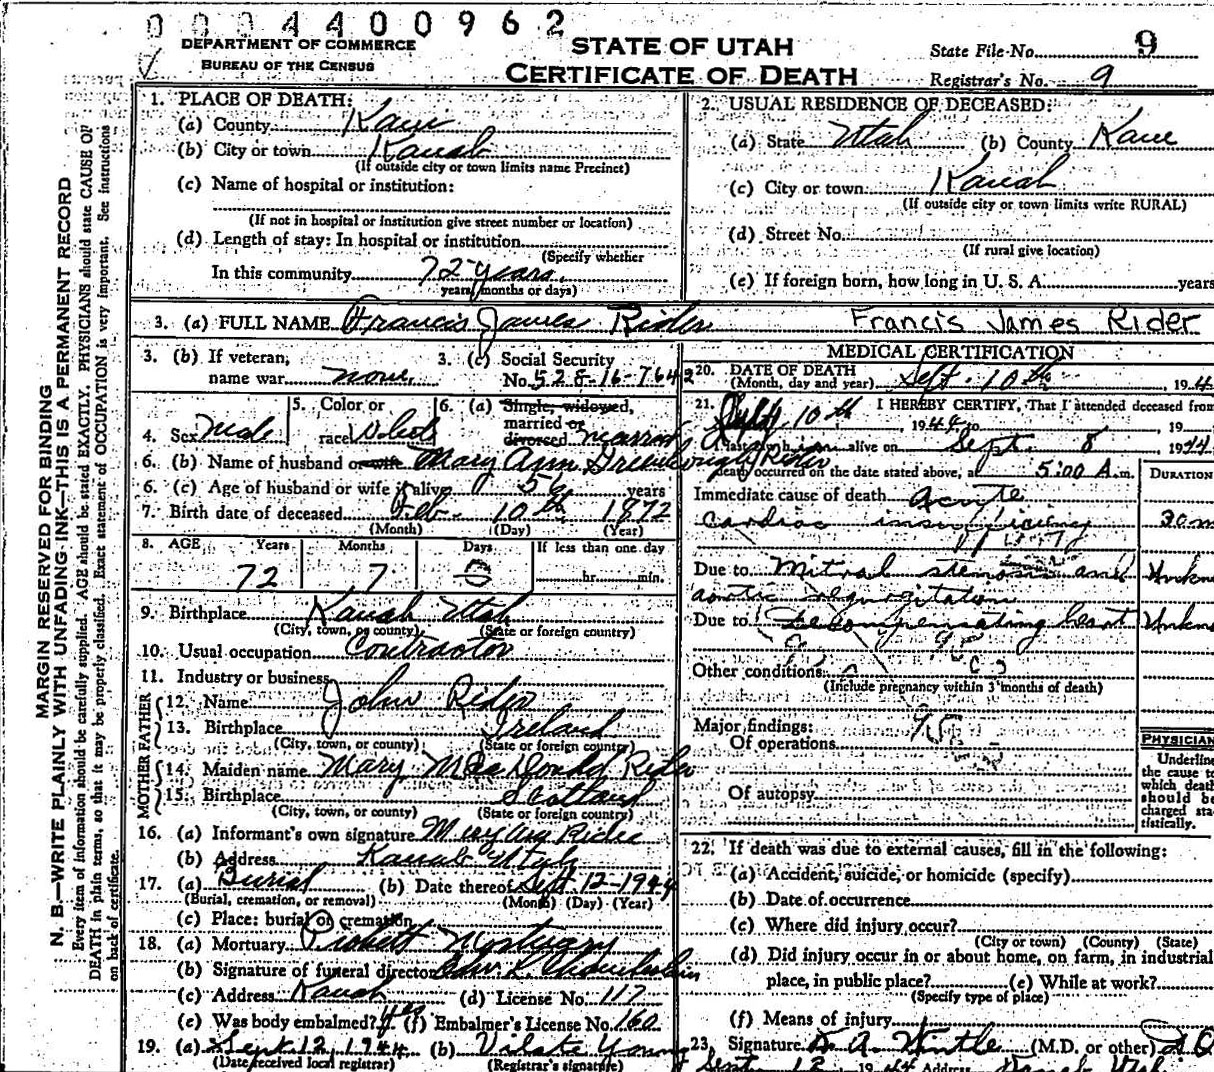 0004400962
DEPARTMENT OF COMMERCE
BUREAU OF THE CENSUS
STATE OF UTAH
CERTIFICATE OF DEATH
State File No. 9
Registrar's No. 9
MARGIN RESERVED FOR BINDING
N. B.—WRITE PLAINLY WITH UNFADING INK—THIS IS A PERMANENT RECORD
Every item of information should be carefully supplied. AGE should be stated EXACTLY. PHYSICIANS should state CAUSE OF
DEATH in plain terms, so that it may be properly classified. Exact statement of OCCUPATION is very important. See instructions
on back of certificate.
1. PLACE OF DEATH:
(a) County Kane
(b) City or town Kanab
(If outside city or town limits name Precinct)
(c) Name of hospital or institution:
(If not in hospital or institution give street number or location)
(d) Length of stay: In hospital or institution
(Specify whether
In this community 72 years
years, months or days)
2. USUAL RESIDENCE OF DECEASED:
(a) State Utah (b) County Kane
(c) City or town Kanab
(If outside city or town limits write RURAL)
(d) Street No.
(If rural give location)
(e) If foreign born, how long in U. S. A. years
3. (a) FULL NAME Francis James Rider Francis James Rider
3. (b) If veteran, name war none
3. (c) Social Security No. 528-16-7642
4. Sex Male
5. Color or race White
6. (a) Single, widowed, married or divorced married
6. (b) Name of husband or wife Mary Ann Greenhalgh Rider
6. (c) Age of husband or wife if alive years
7. Birth date of deceased Feb. 10th 1872
(Month) (Day) (Year)
8. AGE Years Months Days If less than one day
72 7 0 hr. min.
9. Birthplace Kanab Utah
(City, town, or county) (State or foreign country)
10. Usual occupation Contractor
11. Industry or business
FATHER
12. Name John Rider
13. Birthplace Ireland
(City, town, or county) (State or foreign country)
MOTHER
14. Maiden name Mary McDonald Rider
15. Birthplace Scotland
(City, town, or county) (State or foreign country)
16. (a) Informant's own signature Mary Ann Rider
(b) Address Kanab Utah
17. (a) Burial (b) Date thereof Sept. 12-1944
(Burial, cremation, or removal) (Month) (Day) (Year)
(c) Place: burial or cremation
18. (a) Mortuary Mortuary
(b) Signature of funeral director Chamberlain
(c) Address Kanab (d) License No. 117
(e) Was body embalmed? yes (f) Embalmer's License No. 160
19. (a) Sept. 12, 1944 (b) Vilate Young
(Date received local registrar) (Registrar's signature)
MEDICAL CERTIFICATION
20. DATE OF DEATH
(Month, day and year) Sept. 10th, 194
21. I HEREBY CERTIFY, That I attended deceased from
Sept 10th 1944 to 19
alive on Sept. 8 1944
death occurred on the date stated above, at 5:00 A.m.
DURATION
Immediate cause of death acute
cardiac insufficiency 20 m
Due to Mitral stenosis and
aortic regurgitation
Due to Decompensating heart
Other conditions
(Include pregnancy within 3 months of death)
Major findings:
Of operations
Of autopsy
PHYSICIAN
Underline
the cause to
which death
should be
charged sta-
tistically.
22. If death was due to external causes, fill in the following:
(a) Accident, suicide, or homicide (specify)
(b) Date of occurrence
(c) Where did injury occur?
(City or town) (County) (State)
(d) Did injury occur in or about home, on farm, in industrial
place, in public place? (e) While at work?
(Specify type of place)
(f) Means of injury
23. Signature (M.D. or other)
Sept 12 1944 Address Kanab Utah